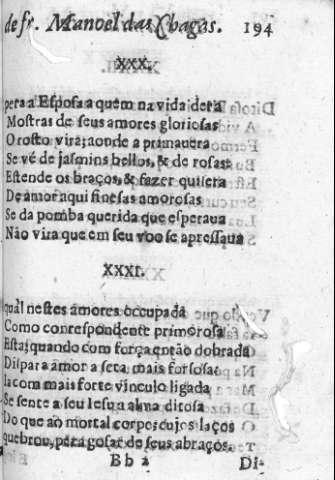 de fr. Manoel das Chagas. 194
XXX.
pera a Esposa a quem na vida dera
Mostras de seus amores gloriosas
O rosto vira; aonde a primauera
Se vé de jasmins bellos, & de rosas:
Estende os braços, & fazer quisera
De amor aqui finesas amorosas
Se da pomba querida que esperaua
Não vira que em seu voo se apressaua
XXXI.
qual nestes amores occupada
Como correspondente primorosa
Esta; quando com força então dobrada
Dispara amor a seta mais forsosa:
Ia com mais forte vinculo ligada
Se sente a seu Iesu a alma ditosa
Do que ao mortal corpo; cujos laços
quebrou, pera gosar de seus abraços.
Bb 2 Di-